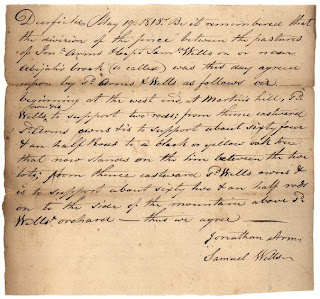 Deerfield May 19. 1815. Be it remembered that
the division of the fence between the pastures
of Jon.a Arms & Capt Saml. Wells on or near
Abijah's brook (so called) was this day agreed
upon by Sd. Arms & Wells as follows viz
beginning at the west end at Martin's hill, Sd.
Wells, to support two rods; from thence eastward
owns &
Sd. Arms owns & is to support about sixty four
& an half Rods to a black or yellow oak tree
that now stands on the line between the two
lots; from thence eastward Sd. Wells owns &
is to support about sixty two & an half rods
on to the side of the mountain above Sd.
Wells' orchard — thus we agree —
Jonathan Arms
Samuel Wells